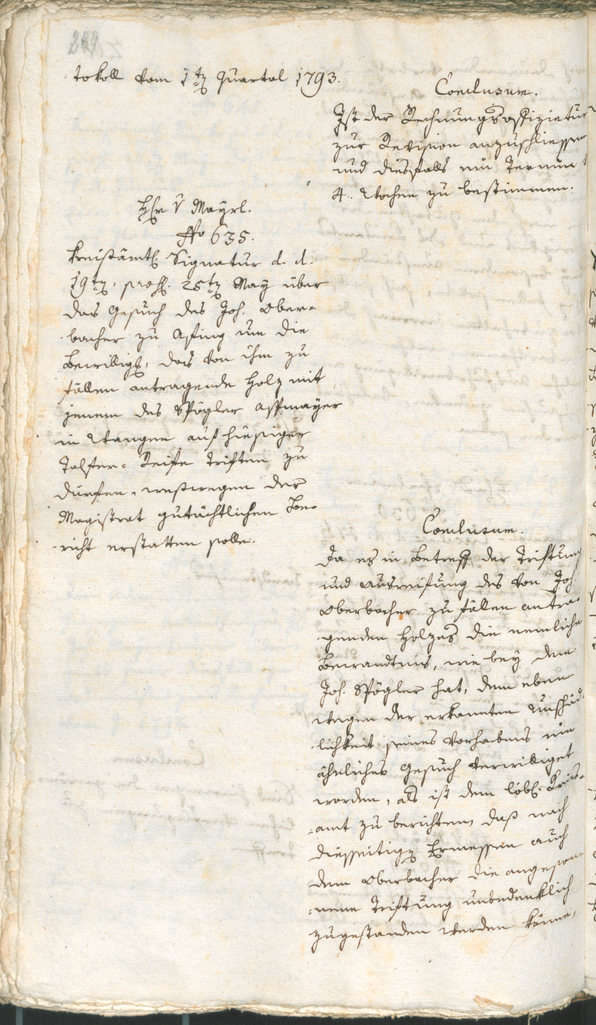 tokoll vom 1ten Quartal 1793.
Conclusum.
Ist der Rechnungsoffizietur
zur Revision anzuschliessen
und diesfalls ein Termin
4. Wochen zu bestimmen.
Hr v Mayrl.
No 635.
Kreisämtl Signatur d. d.
19ten, prs. 25ten May über
das Gesuch des Joh. Ober-
bacher zu Afing um die
Bewilligg, das von ihm zu
fällen antragende Holz mit
jenem des Spögler Assmayer
in Wangen auf hiesiger
Talfer- Reife triften zu
dürfen, weßwegen der
Magistrat gutächtlichen Be-
richt erstatten solle.
Conclusum.
Da es in Betreff der Triftung
und Ausreifung des von Joh.
Oberbacher zu fällen antra-
genden Holzes die nemliche
Bewandtnis, wie bey dem
Joh. Spögler hat, dem eben
wegen der erkannten Unschäd-
lichkeit seines Vorhabens ein
ähnliches Gesuch verwilliget
worden, als ist dem löbl. Kreis-
amt zu berichten, daß nach
diesseitigen Ermessen auch
dem Oberbacher die angeson-
nene Triftung unbedenklich
zugestanden werden könne,